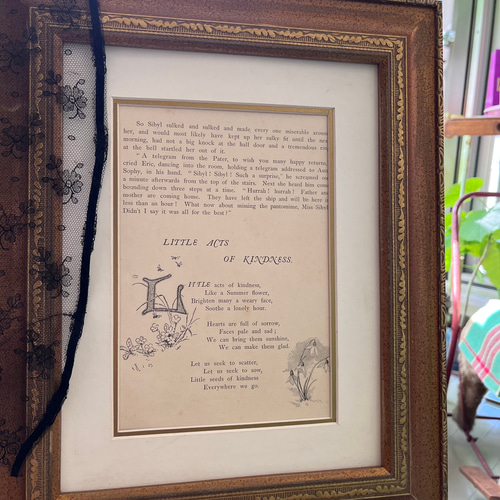 So Sibyl sulked and sulked and made every one miserable around
her, and would most likely have kept up her sulks fit until the next
morning, had not a big knock at the hall door and a tremendous ring
at the bell startled her out of it.
"A telegram from the Pater, to wish you many happy returns,"
cried Eric, dancing into the room, holding a telegram addressed to Aunt
Sophy, in his hand. "Sibyl! Sibyl! Such a surprise," he screamed out
a minute afterwards from the top of the stairs. Next she heard him come
bounding down three steps at a time. "Hurrah! hurrah! Father and
mother are coming home. They have left the ship and will be here in
less than an hour! What now about missing the pantomime, Miss Sibyl?
Didn't I say it was all for the best!"
LITTLE ACTS
OF KINDNESS.
LITTLE acts of kindness,
Like a Summer flower,
Brighten many a weary face,
Soothe a lonely hour.
Hearts are full of sorrow,
Faces pale and sad;
We can bring them sunshine,
We can make them glad.
Let us seek to scatter,
Let us seek to sow,
Little seeds of kindness
Everywhere we go.